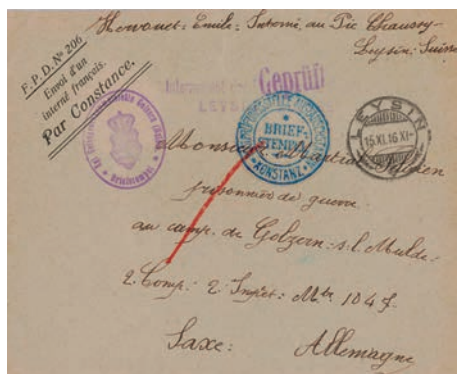 Hervouet: Emile: Interné, au Pic Chaussy-
Leysin: Suisse
F.P.D. Nº 206
Envoi d'un
interné français.
Par Constance.
Geprüft
LEYSIN
15.XI.16 XI-
BRIEF-
STEMPEL
KONSTANZ
Briefstempel
Monsieur Martial
prisonnier de guerre
au camp. de Golzern: s.l. Mulde:
2. Comp: 2. Inspet: Mle 104
Saxe: Allemagne